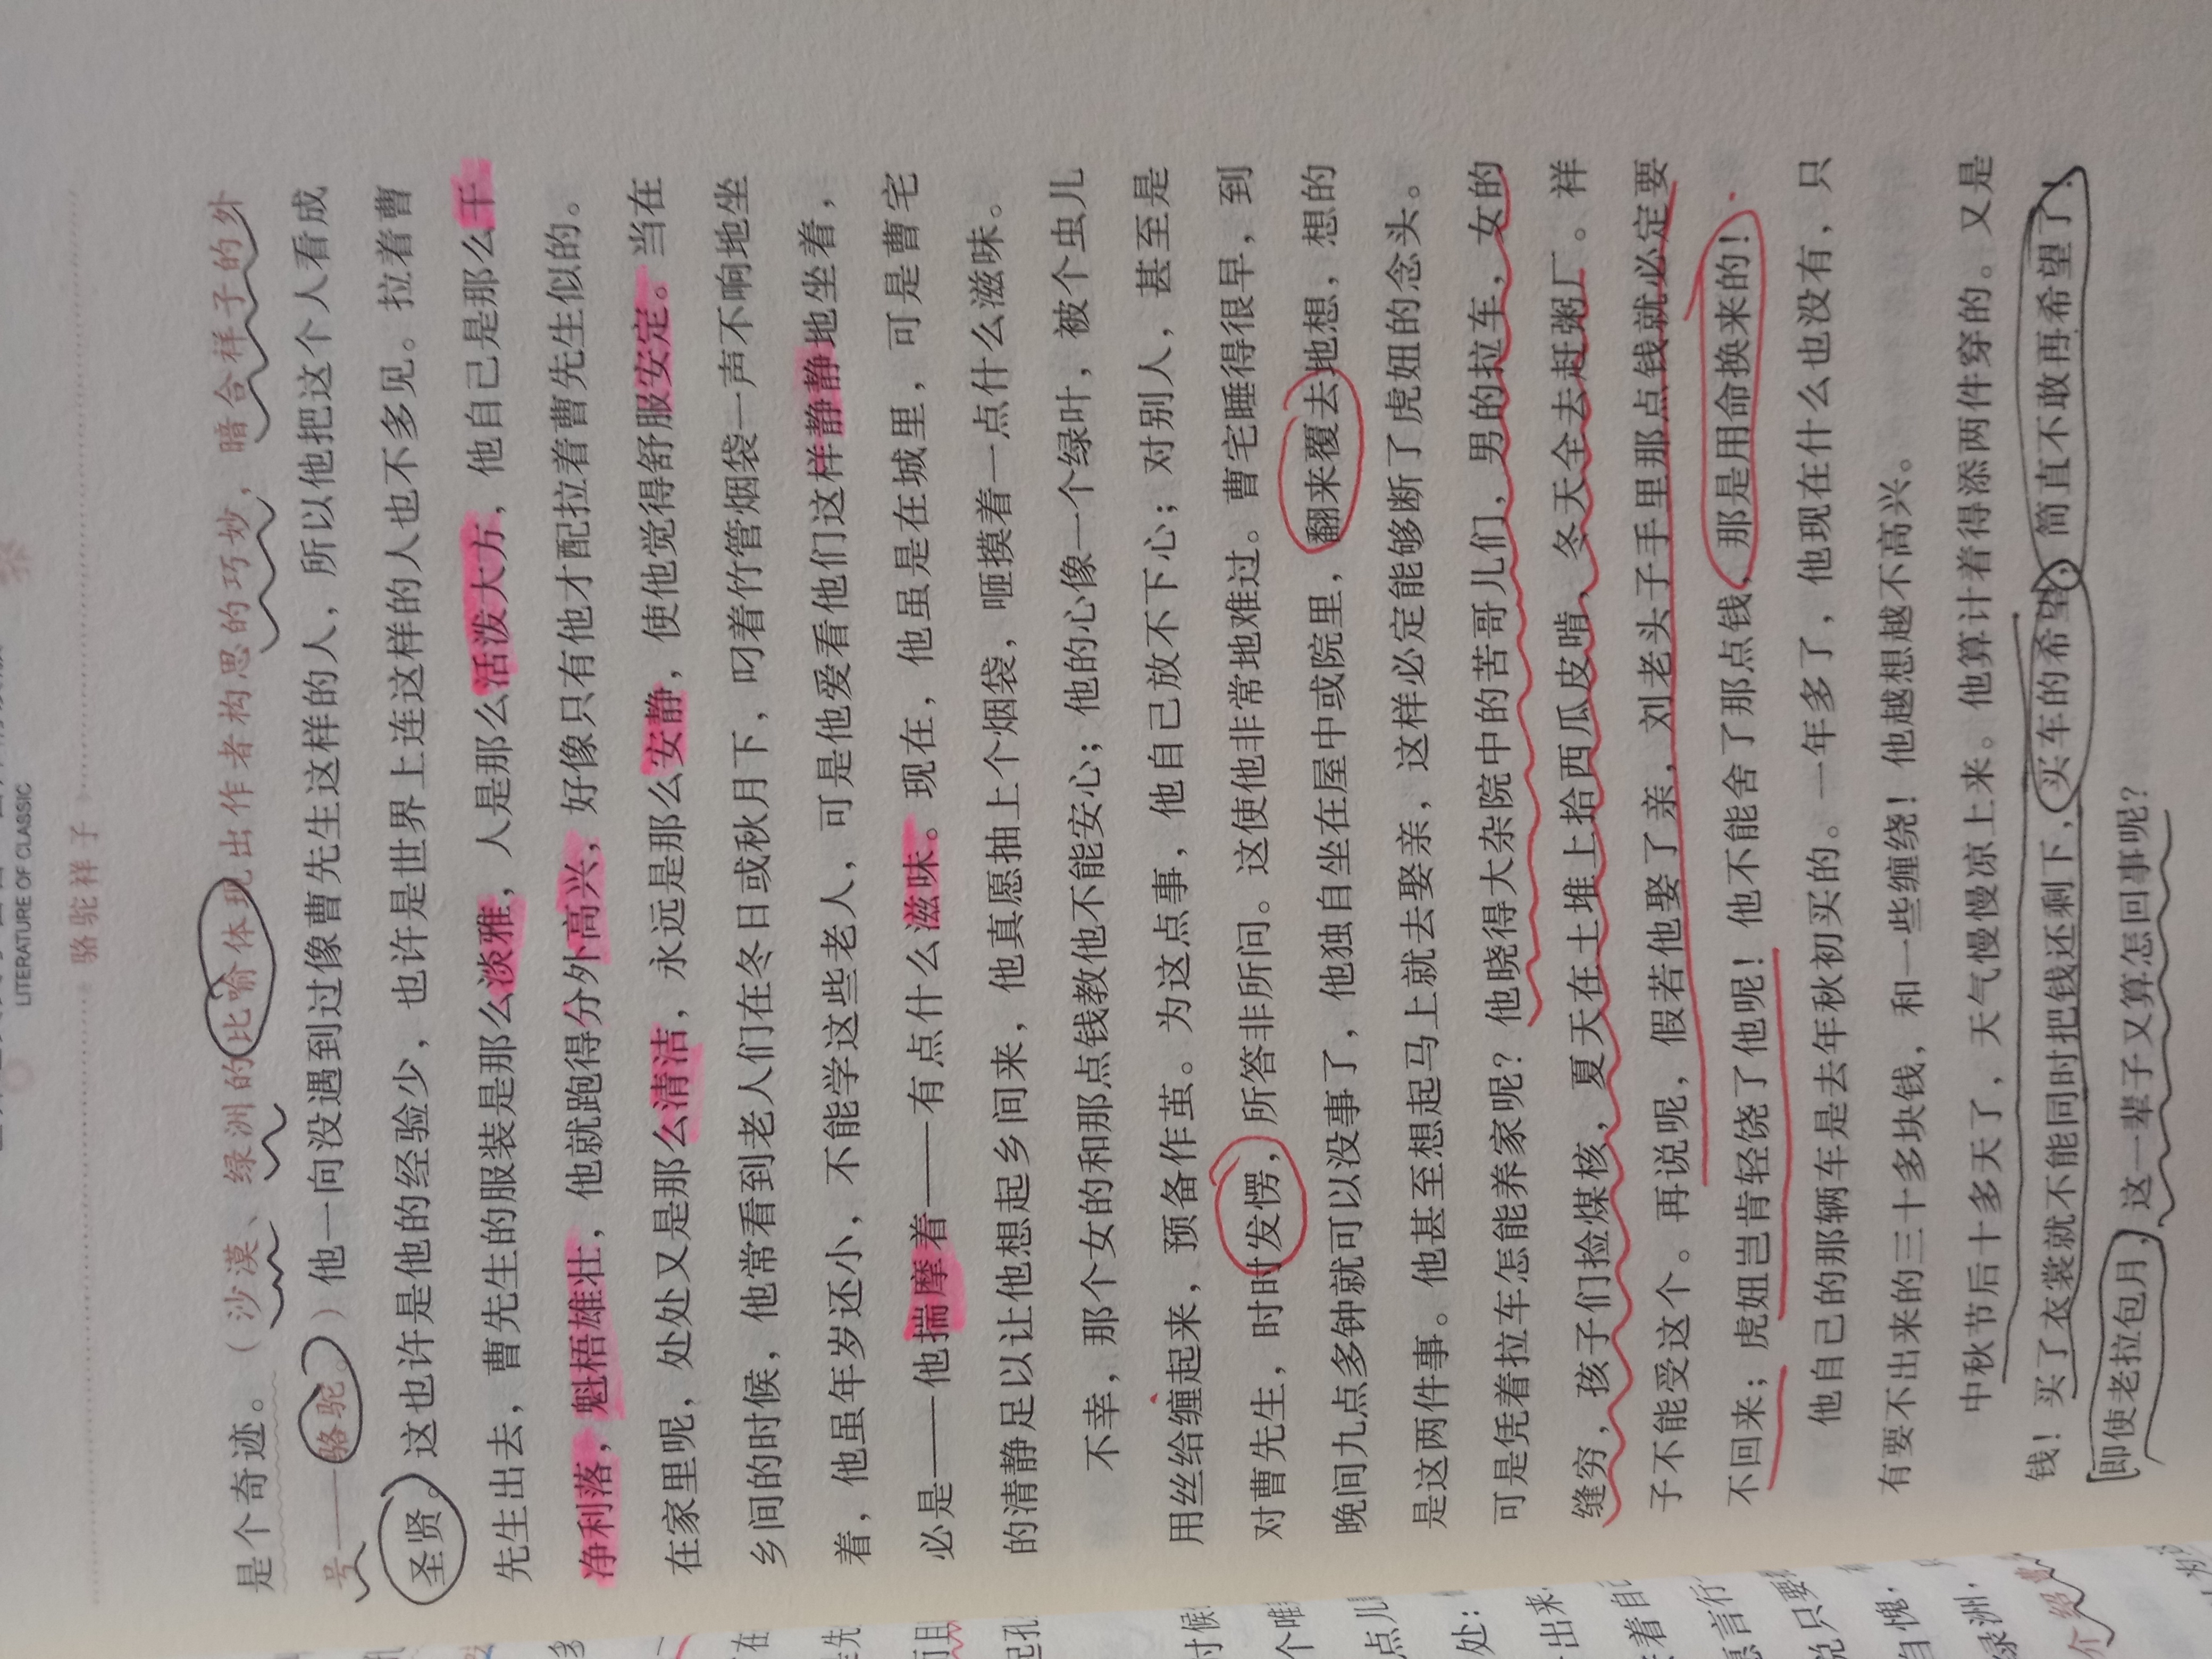 LITERATURE OF CLASSIC
骆驼祥子
是个奇迹。（沙漠、绿洲的比喻体现出作者构思的巧妙，暗合祥子的外
号——骆驼。）他一向没遇到过像曹先生这样的人，所以他把这个人看成
圣贤。这也许是他的经验少，也许是世界上连这样的人也不多见。拉着曹
先生出去，曹先生的服装是那么淡雅，人是那么活泼大方，他自己是那么干
净利落，魁梧雄壮，他就跑得分外高兴，好像只有他才配拉着曹先生似的。
在家里呢，处处又是那么清洁，永远是那么安静，使他觉得舒服安定。当在
乡间的时候，他常看到老人们在冬日或秋月下，叼着竹管烟袋一声不响地坐
着，他虽年岁还小，不能学这些老人，可是他爱看他们这样静静地坐着，
必是——他揣摩着——有点什么滋味。现在，他虽是在城里，可是曹宅
的清静足以让他想起乡间来，他真愿抽上个烟袋，咂摸着一点什么滋味。
不幸，那个女的和那点钱教他不能安心；他的心像一个绿叶，被个虫儿
用丝给缠起来，预备作茧。为这点事，他自己放不下心；对别人，甚至是
对曹先生，时时发愣，所答非所问。这使他非常地难过。曹宅睡得很早，到
晚间九点多钟就可以没事了，他独自坐在屋中或院里，翻来覆去地想，想的
是这两件事。他甚至想起马上就去娶亲，这样必定能够断了虎妞的念头。
可是凭着拉车怎能养家呢？他晓得大杂院中的苦哥儿们，男的拉车，女的
缝穷，孩子们捡煤核，夏天在土堆上拾西瓜皮啃，冬天全去赶粥厂。祥
子不能受这个。再说呢，假若他娶了亲，刘老头子手里那点钱就必定要
不回来；虎妞岂肯轻饶了他呢！他不能舍了那点钱，那是用命换来的！
他自己的那辆车是去年秋初买的。一年多了，他现在什么也没有，只
有要不出来的三十多块钱，和一些缠绕！他越想越不高兴。
中秋节后十多天了，天气慢慢凉上来。他算计着得添两件穿的。又是
钱！买了衣裳就不能同时把钱还剩下，买车的希望，简直不敢再希望了！
即使老拉包月，这一辈子又算怎回事呢？